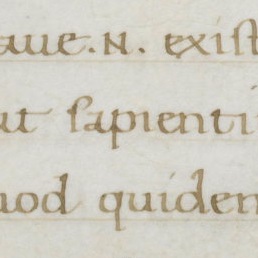 aue.N. exist
ut sapienti
uod quiden